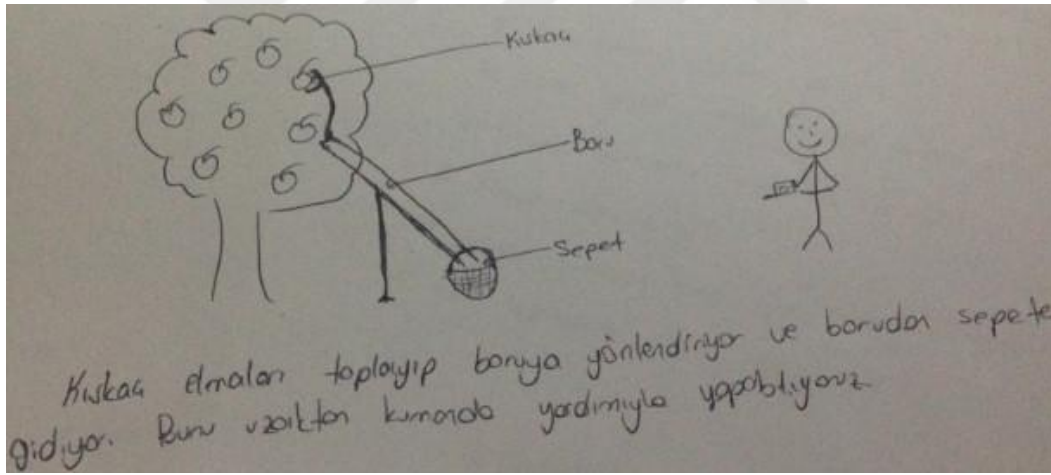 Kıskaç
Boru
Sepet
Kıskaç elmaları toplayıp boruya yönlendiriyor ve borudan sepete
gidiyor. Bunu uzaktan kumanda yardımıyla yapabiliyoruz